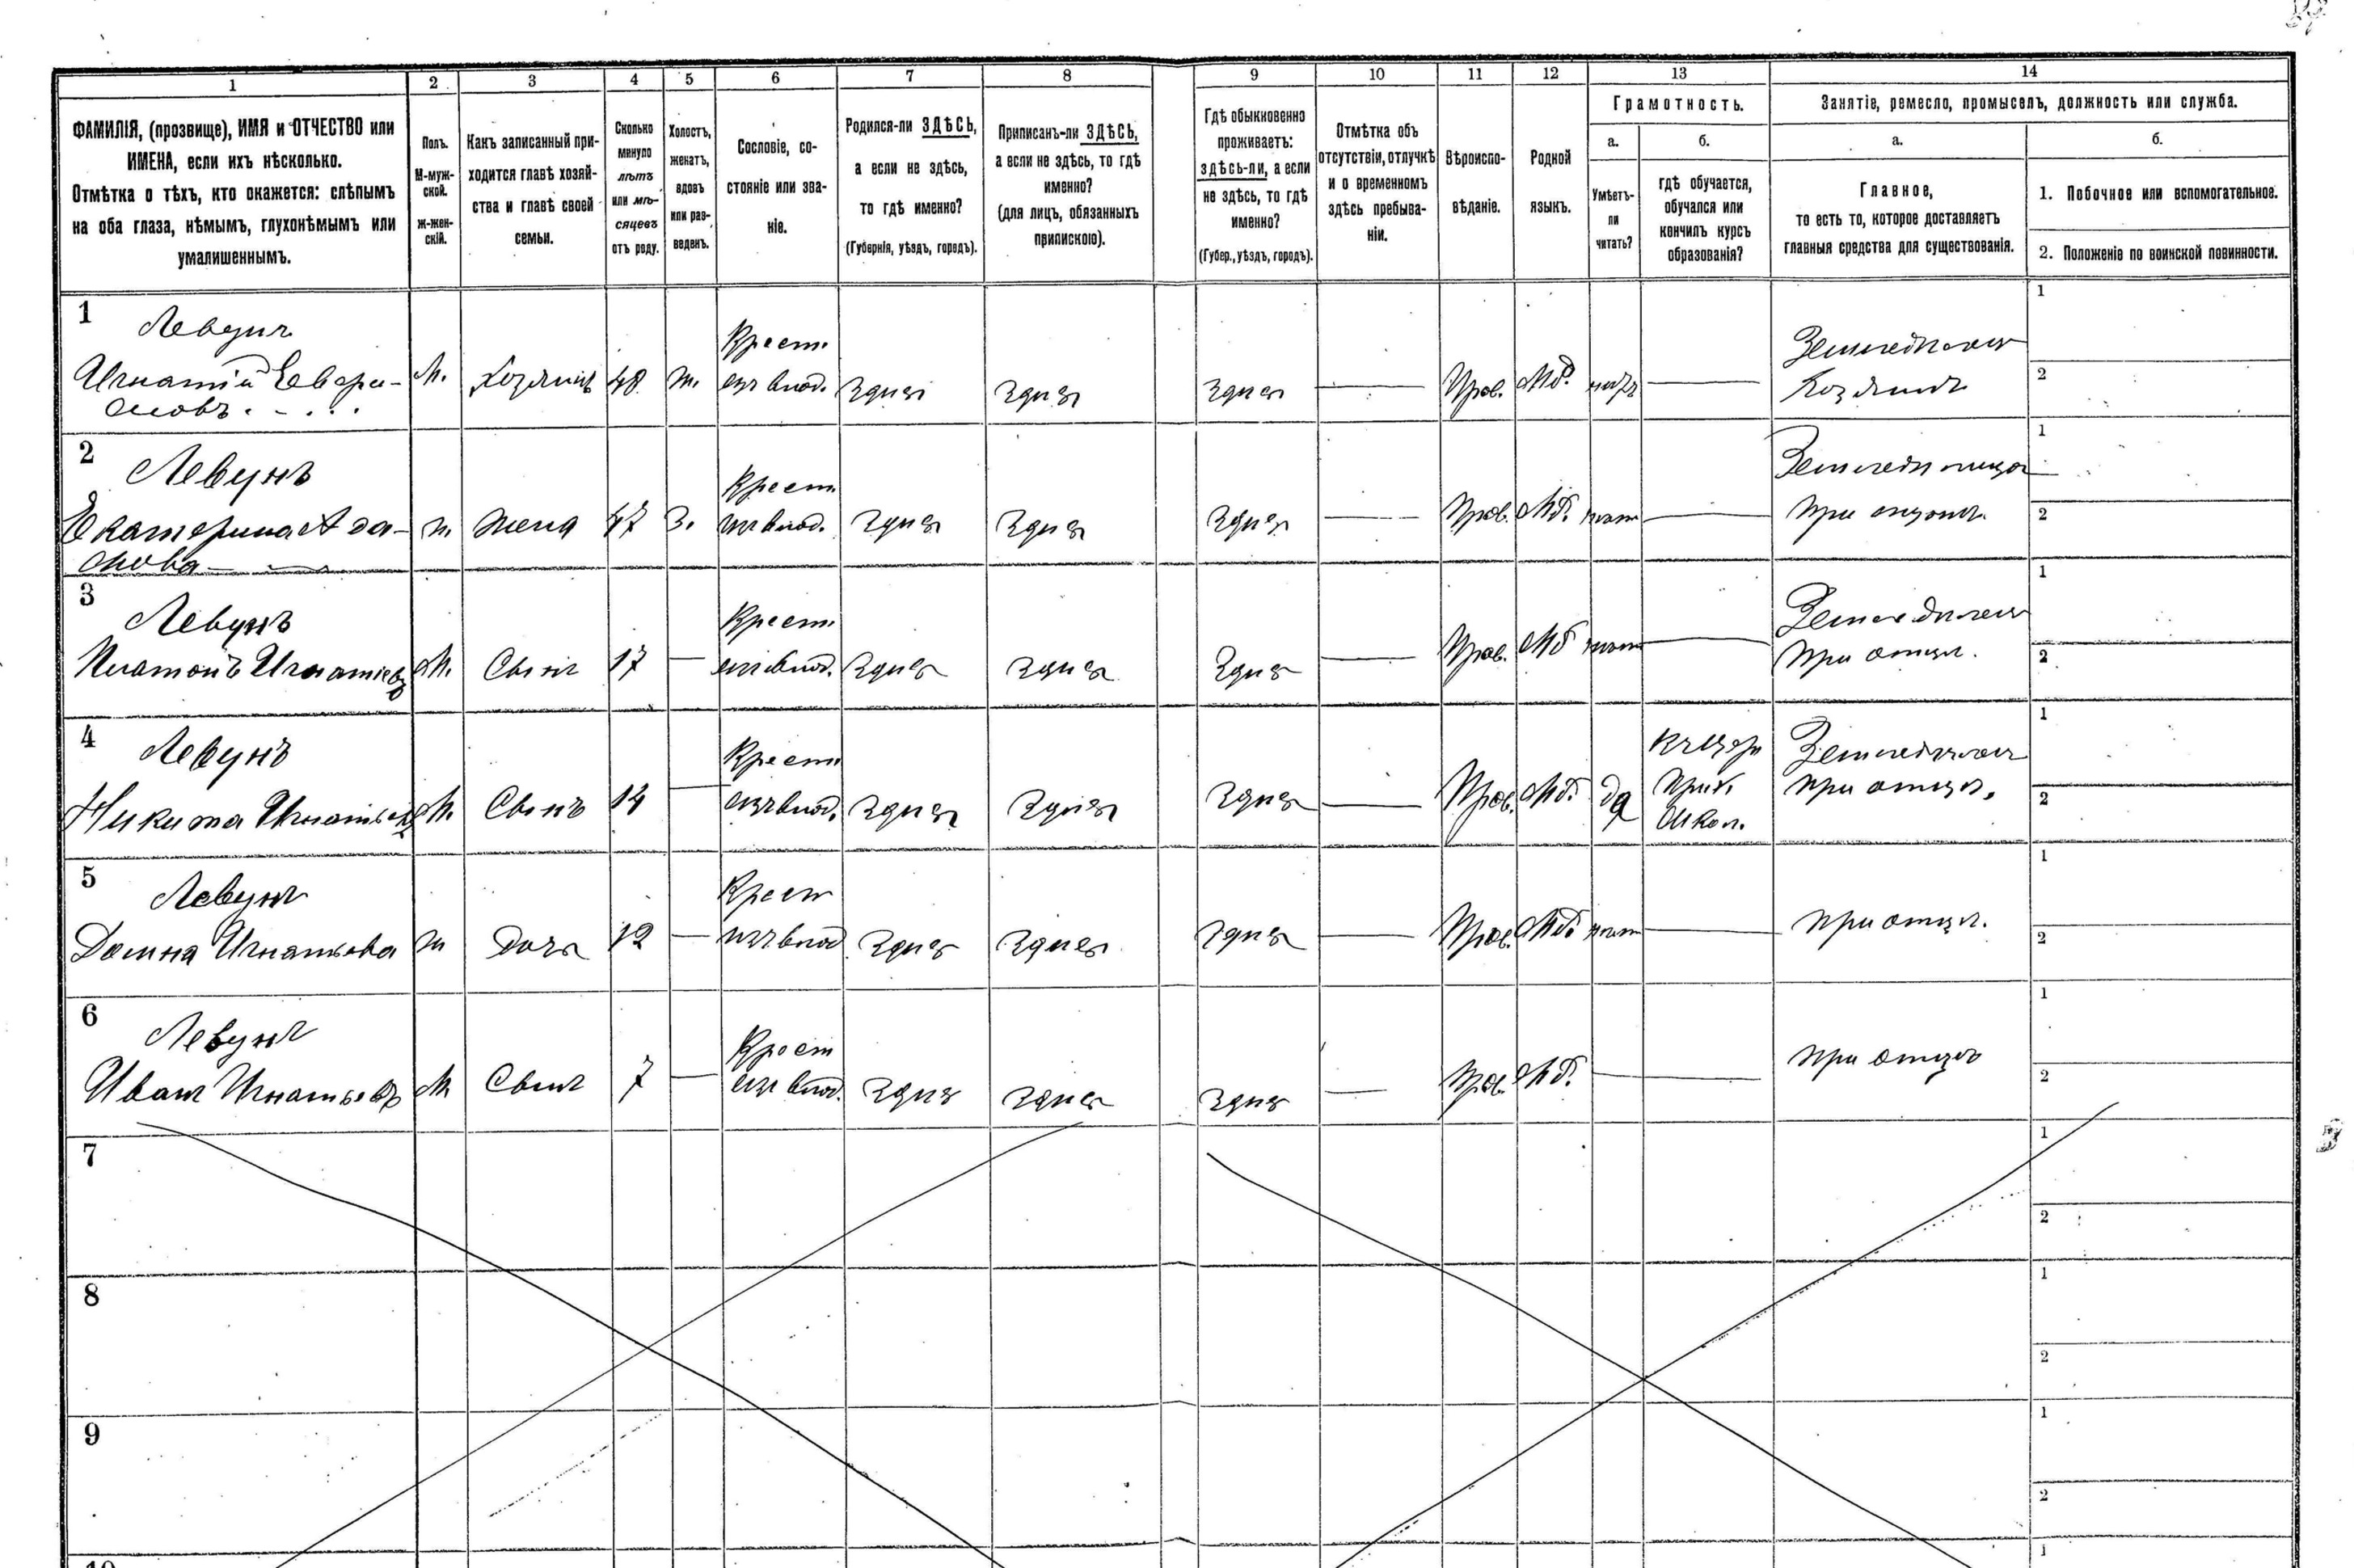 1
2
3
4
5
6
7
8
9
10
11
12
13
14
ФАМИЛІЯ, (прозвище), ИМЯ и ОТЧЕСТВО или
ИМЕНА, если ихъ нѣсколько.
Отмѣтка о тѣхъ, кто окажется: слѣпымъ
на оба глаза, нѣмымъ, глухонѣмымъ или
умалишеннымъ.
Полъ.
М-муж-
ской.
Ж-жен-
скій.
Какъ записанный при-
ходится главѣ хозяй-
ства и главѣ своей
семьи.
Сколько
минуло
лѣтъ
или мѣ-
сяцевъ
отъ роду.
Холостъ,
женатъ,
вдовъ
или раз-
веденъ.
Сословіе, со-
стояніе или зва-
ніе.
Родился-ли ЗДѢСЬ,
а если не здѣсь,
то гдѣ именно?
(Губернія, уѣздъ, городъ).
Приписанъ-ли ЗДѢСЬ,
а если не здѣсь, то гдѣ
именно?
(для лицъ, обязанныхъ
припискою).
Гдѣ обыкновенно
проживаетъ:
здѣсь-ли, а если
не здѣсь, то гдѣ
именно?
(Губер., уѣздъ, городъ).
Отмѣтка объ
отсутствіи, отлучкѣ
и о временномъ
здѣсь пребыва-
ніи.
Вѣроиспо-
вѣданіе.
Родной
языкъ.
Грамотность.
а.
Умѣетъ-
ли
читать?
б.
гдѣ обучается,
обучался или
кончилъ курсъ
образованія?
Занятіе, ремесло, промыселъ, должность или служба.
а.
Главное,
то есть то, которое доставляетъ
главныя средства для существованія.
б.
1. Побочное или вспомогательное.
2. Положеніе по воинской повинности.
1
Левунъ
Игнатій
М.
Хозяинъ
48
ж.
Крест.
изъ влад.
Здѣсь
Здѣсь
Здѣсь
Прав.
Мб.
нѣтъ
Хозяинъ
1
2
2
Левунъ
Екатерина
ж.
жена
47
З.
Крест.
изъ влад.
Здѣсь
Здѣсь
Здѣсь
Прав.
Мб.
нѣтъ
1
2
3
Левунъ
Платонъ Игнатіевъ
М.
Сынъ
17
Крест.
изъ влад.
Здѣсь
Здѣсь
Здѣсь
Прав.
Мб
нѣтъ
при отцѣ.
1
2
4
Левунъ
Никита Игнатьевъ
М.
Сынъ
14
Крест.
изъ влад.
Здѣсь
Здѣсь
Здѣсь
Прав.
Мб.
да
Школ.
при отцѣ.
1
2
5
Левунъ
Домна Игнатьева
ж
Дочь
12
Крест
изъ влад
Здѣсь
Здѣсь
Здѣсь
Прав.
Мб.
нѣтъ
при отцѣ.
1
2
6
Левунъ
Иванъ Игнатьевъ
М
Сынъ
7
Крест
изъ влад.
Здѣсь
Здѣсь
Здѣсь
Прав.
Мб.
при отцѣ
1
2
7
1
2
8
1
2
9
1
2
10
1